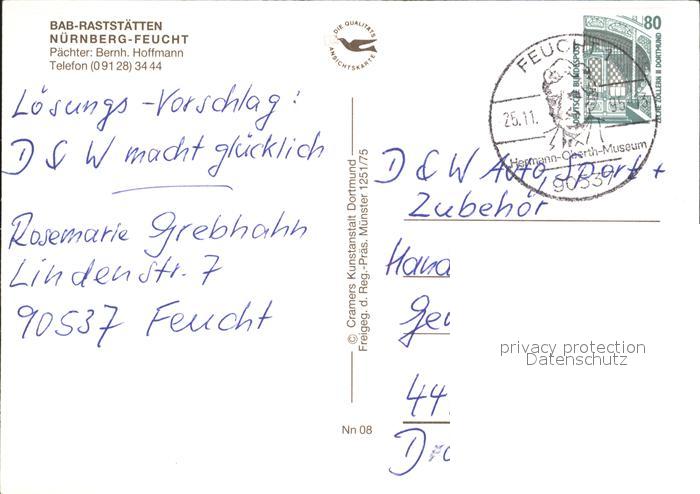 BAB-RASTSTÄTTEN
NÜRNBERG-FEUCHT
Pächter: Bernh. Hoffmann
Telefon (0 91 28) 34 44
Lösungs-Vorschlag:
D & W macht glücklich
Rosemarie Grebhahn
Lindenstr. 7
90537 Feucht
DIE QUALITÄTS
ANSICHTSKARTE
© Cramers Kunstanstalt Dortmund
Freigeg. d. Reg.-Präs. Münster 1251/75
Nn 08
80
DEUTSCHE BUNDESPOST
ZECHE ZOLLERN II DORTMUND
FEUCHT
25.11.
Hermann-Oberth-Museum
90537
D & W Auto, Sport +
Zubehör
44
privacy protection
Datenschutz